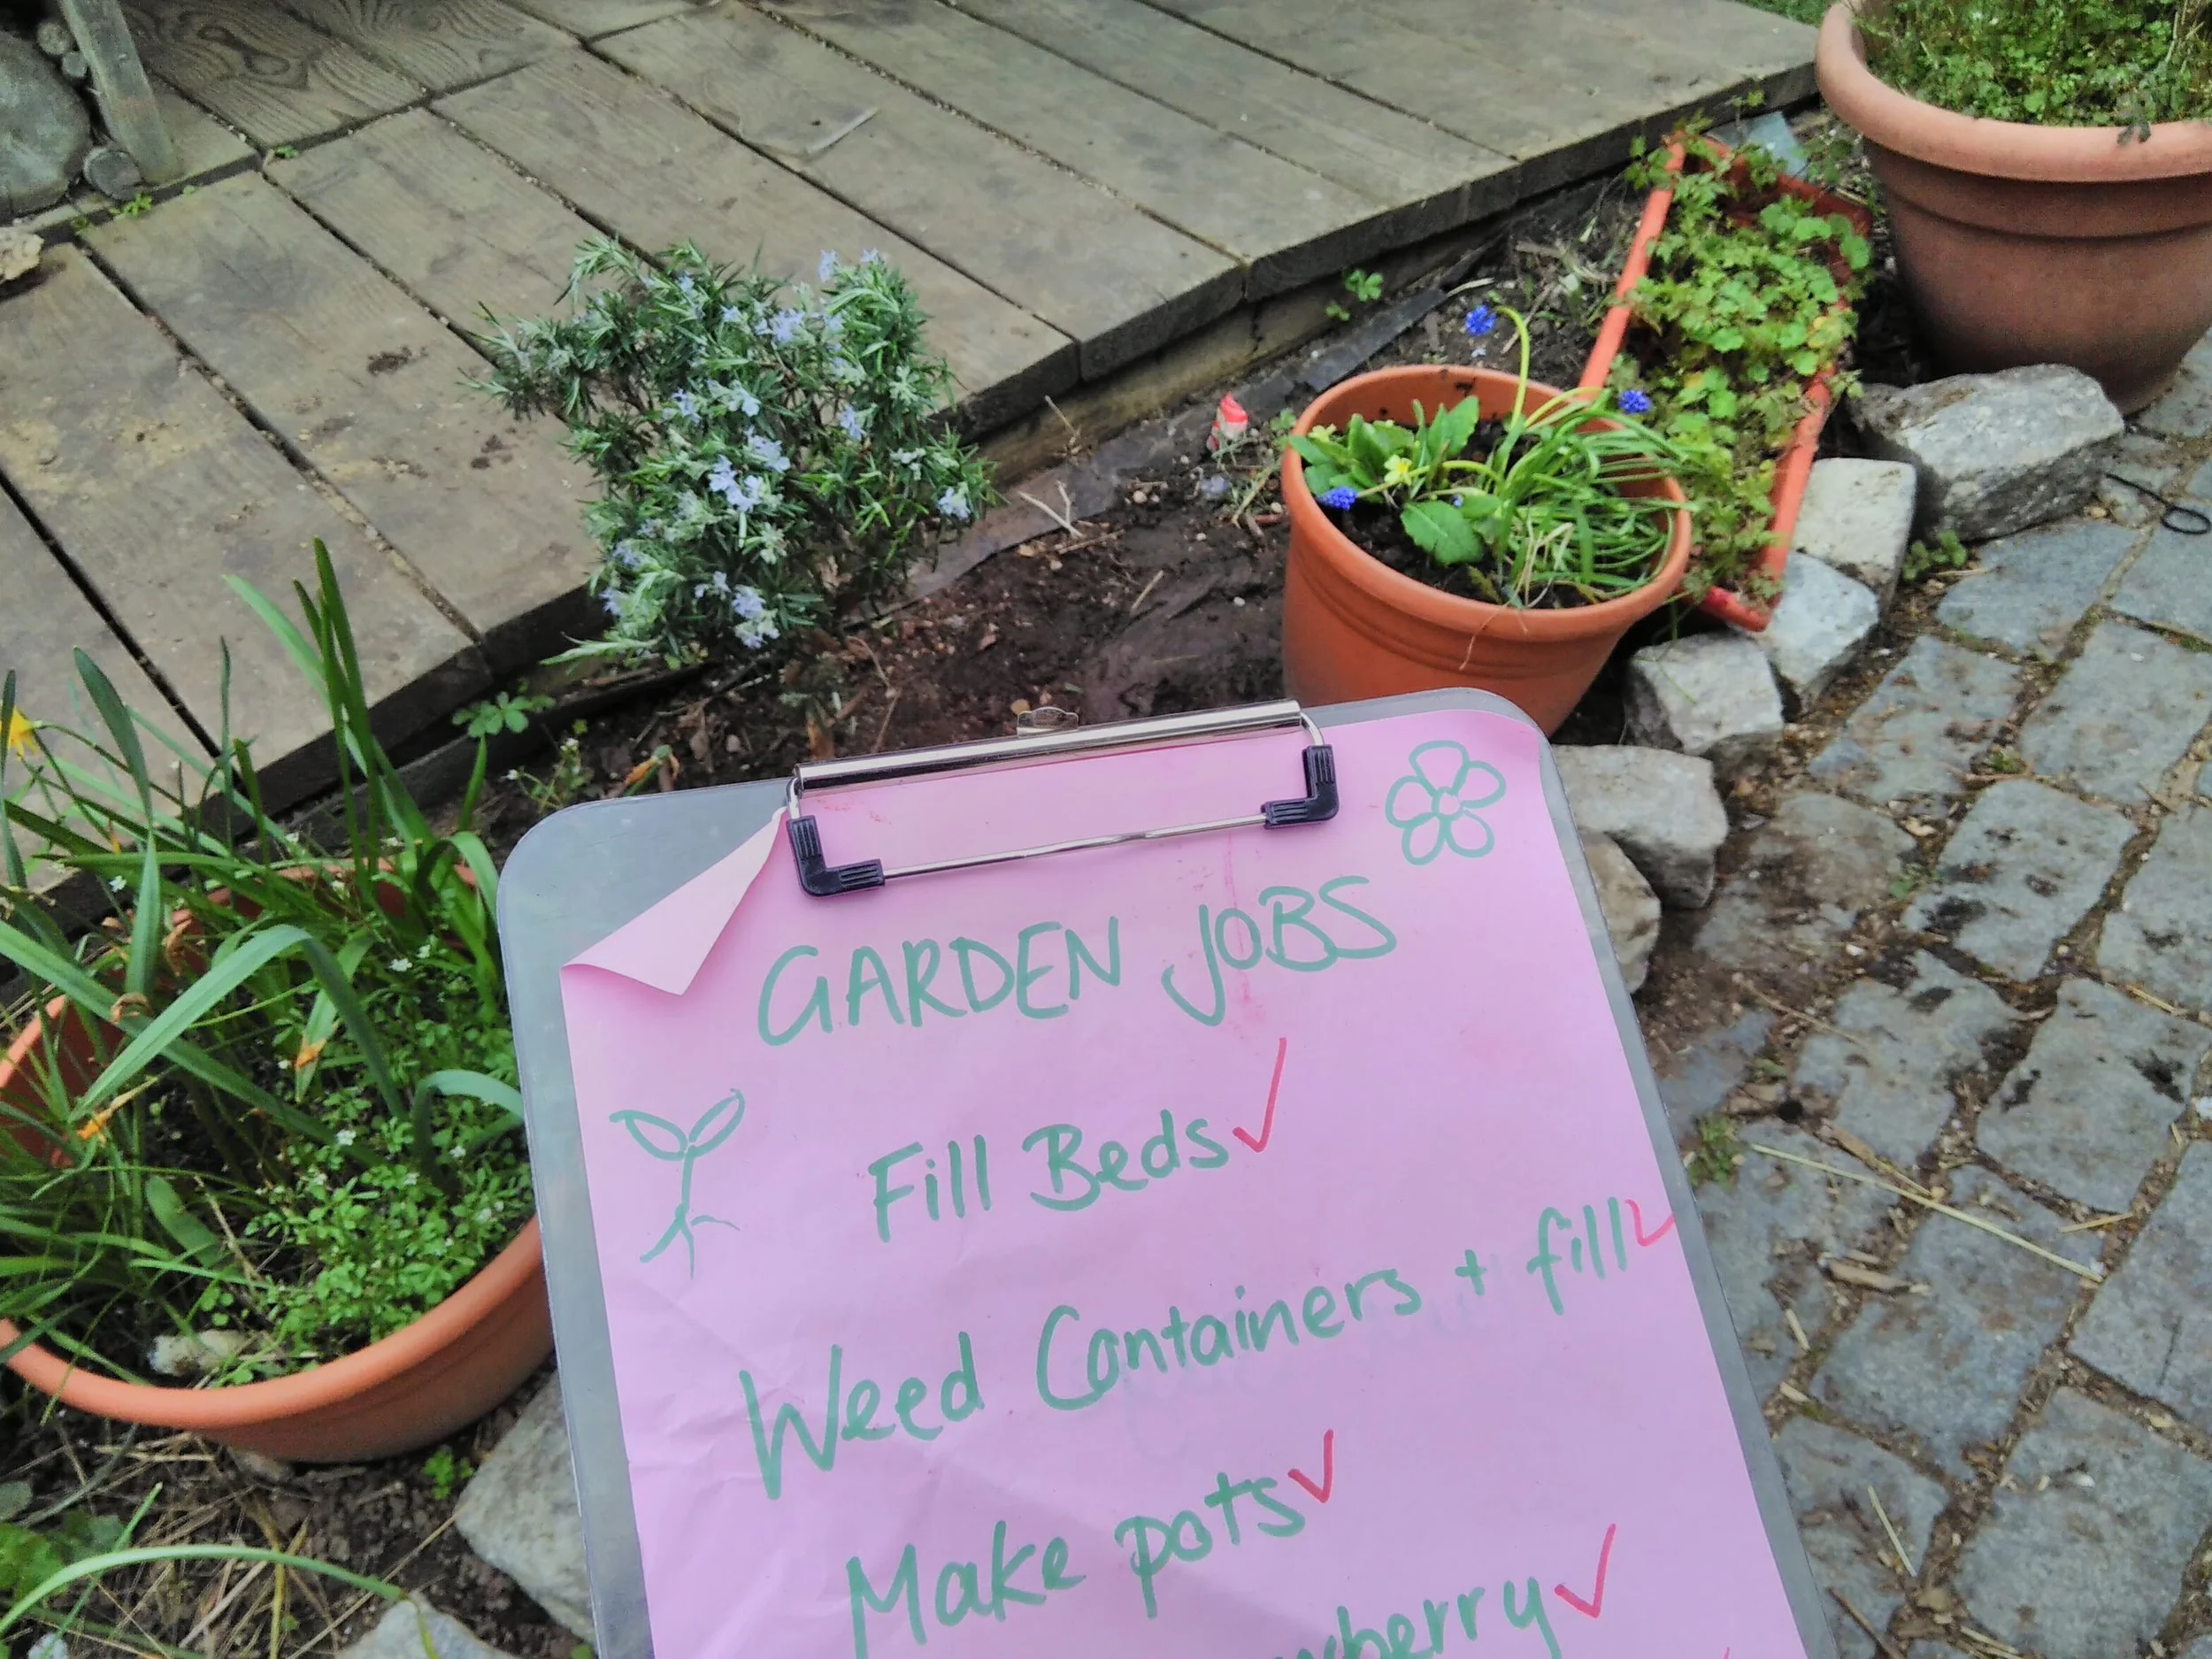 GARDEN JOBS
Fill Beds ✓
Weed Containers + fill ✓
Make pots ✓